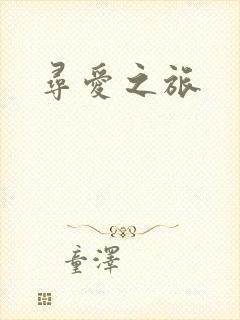 尋愛之旅
童澤